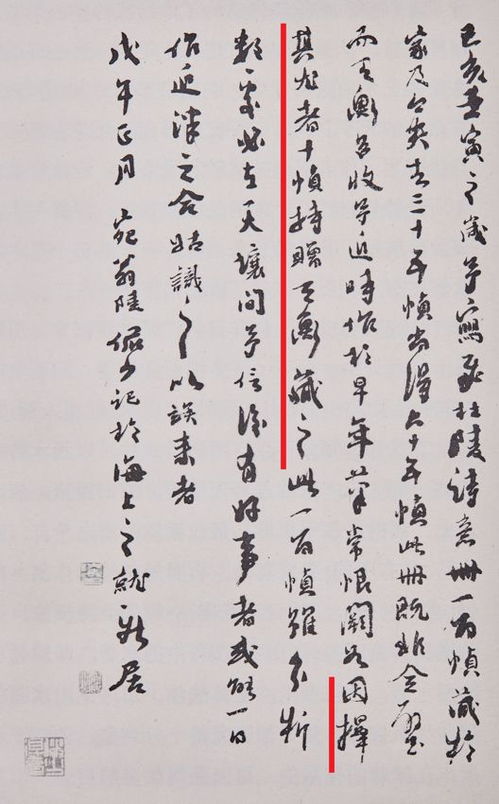 己亥壬寅之歲予寫杜陵詩意冊一百幀藏於
家及亡失去三十五幀尚得六十五幀此冊既非全璧
而天衡多收予近時作於早年筆常恨闕如因擇
其尤者十幀持贈天衡藏之此一百幀雖分析
數家必在天壤間予信後有好事者或能一日
作延津之合姑識之以諗來者
戊午正月 宛翁陸儼少記於海上之就新居